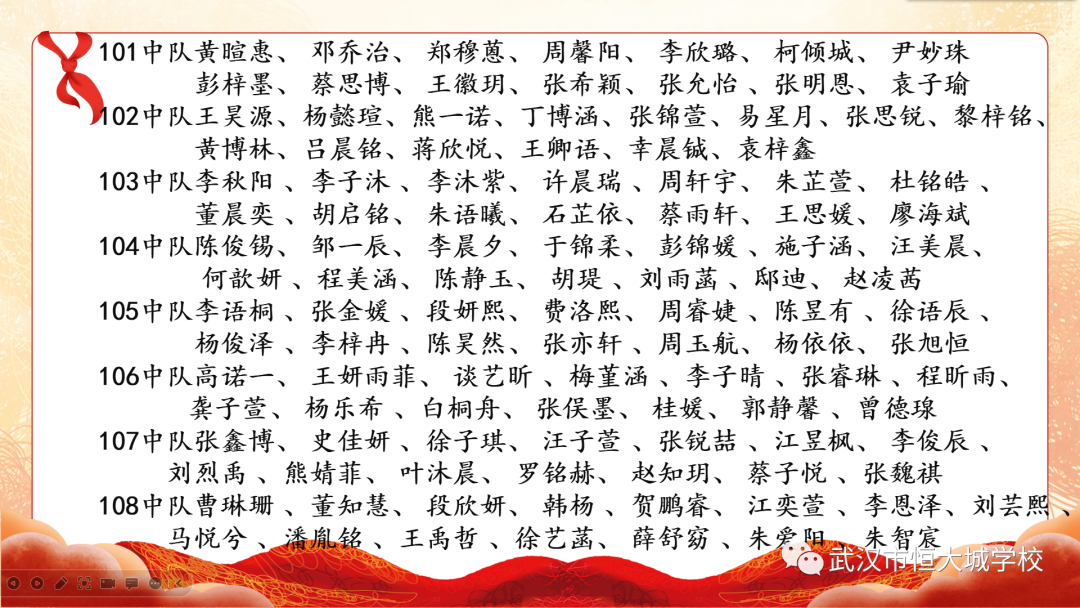 101中队黄暄惠、 邓乔治、 郑穆蒽、 周馨阳、 李欣璐、 柯倾城、 尹妙珠
彭梓墨、 蔡思博、 王徽玥、 张希颖、 张允怡 、张明恩、 袁子瑜
102中队王昊源、杨懿瑄、熊一诺、丁博涵、张锦萱、易星月、张思锐、黎梓铭、
黄博林、吕晨铭、蒋欣悦、王卿语、幸晨铖、袁梓鑫
103中队李秋阳 、李子沐 、李沐紫、 许晨瑞 、周轩宇、 朱芷萱、 杜铭皓 、
董晨奕 、胡启铭、 朱语曦、 石芷依、 蔡雨轩、 王思媛、 廖海斌
104中队陈俊锡、 邹一辰、 李晨夕、 于锦柔、 彭锦媛 、施子涵、 汪美晨、
何歆妍 、程美涵、 陈静玉、 胡瑅 、刘雨菡 、邸迪、 赵凌茜
105中队李语桐 、张金媛 、段妍熙、 费洛熙、 周睿婕 、陈昱有 、徐语辰 、
杨俊泽 、李梓冉 、陈昊然、 张亦轩 、周玉航、 杨依依、 张旭恒
106中队高诺一、 王妍雨菲、 谈艺昕 、梅堇涵 、李子晴 、张睿琳 、程昕雨、
龚子萱、 杨乐希 、白桐舟、 张俣墨、 桂媛、 郭静馨 、曾德琅
107中队张鑫博、 史佳妍 、徐子琪、 汪子萱 、张锐喆 、江昱枫、 李俊辰 、
刘烈禹 、熊婧菲、 叶沐晨、 罗铭赫、 赵知玥、 蔡子悦 、张魏祺
108中队曹琳珊 、董知慧、 段欣妍、 韩杨 、贺鹏睿、 江奕萱 、李恩泽、刘芸熙 、
马悦兮 、潘胤铭 、王禹哲 、徐艺菡、 薛舒窈 、朱爱阳 、朱智宸
武汉市恒大城学校